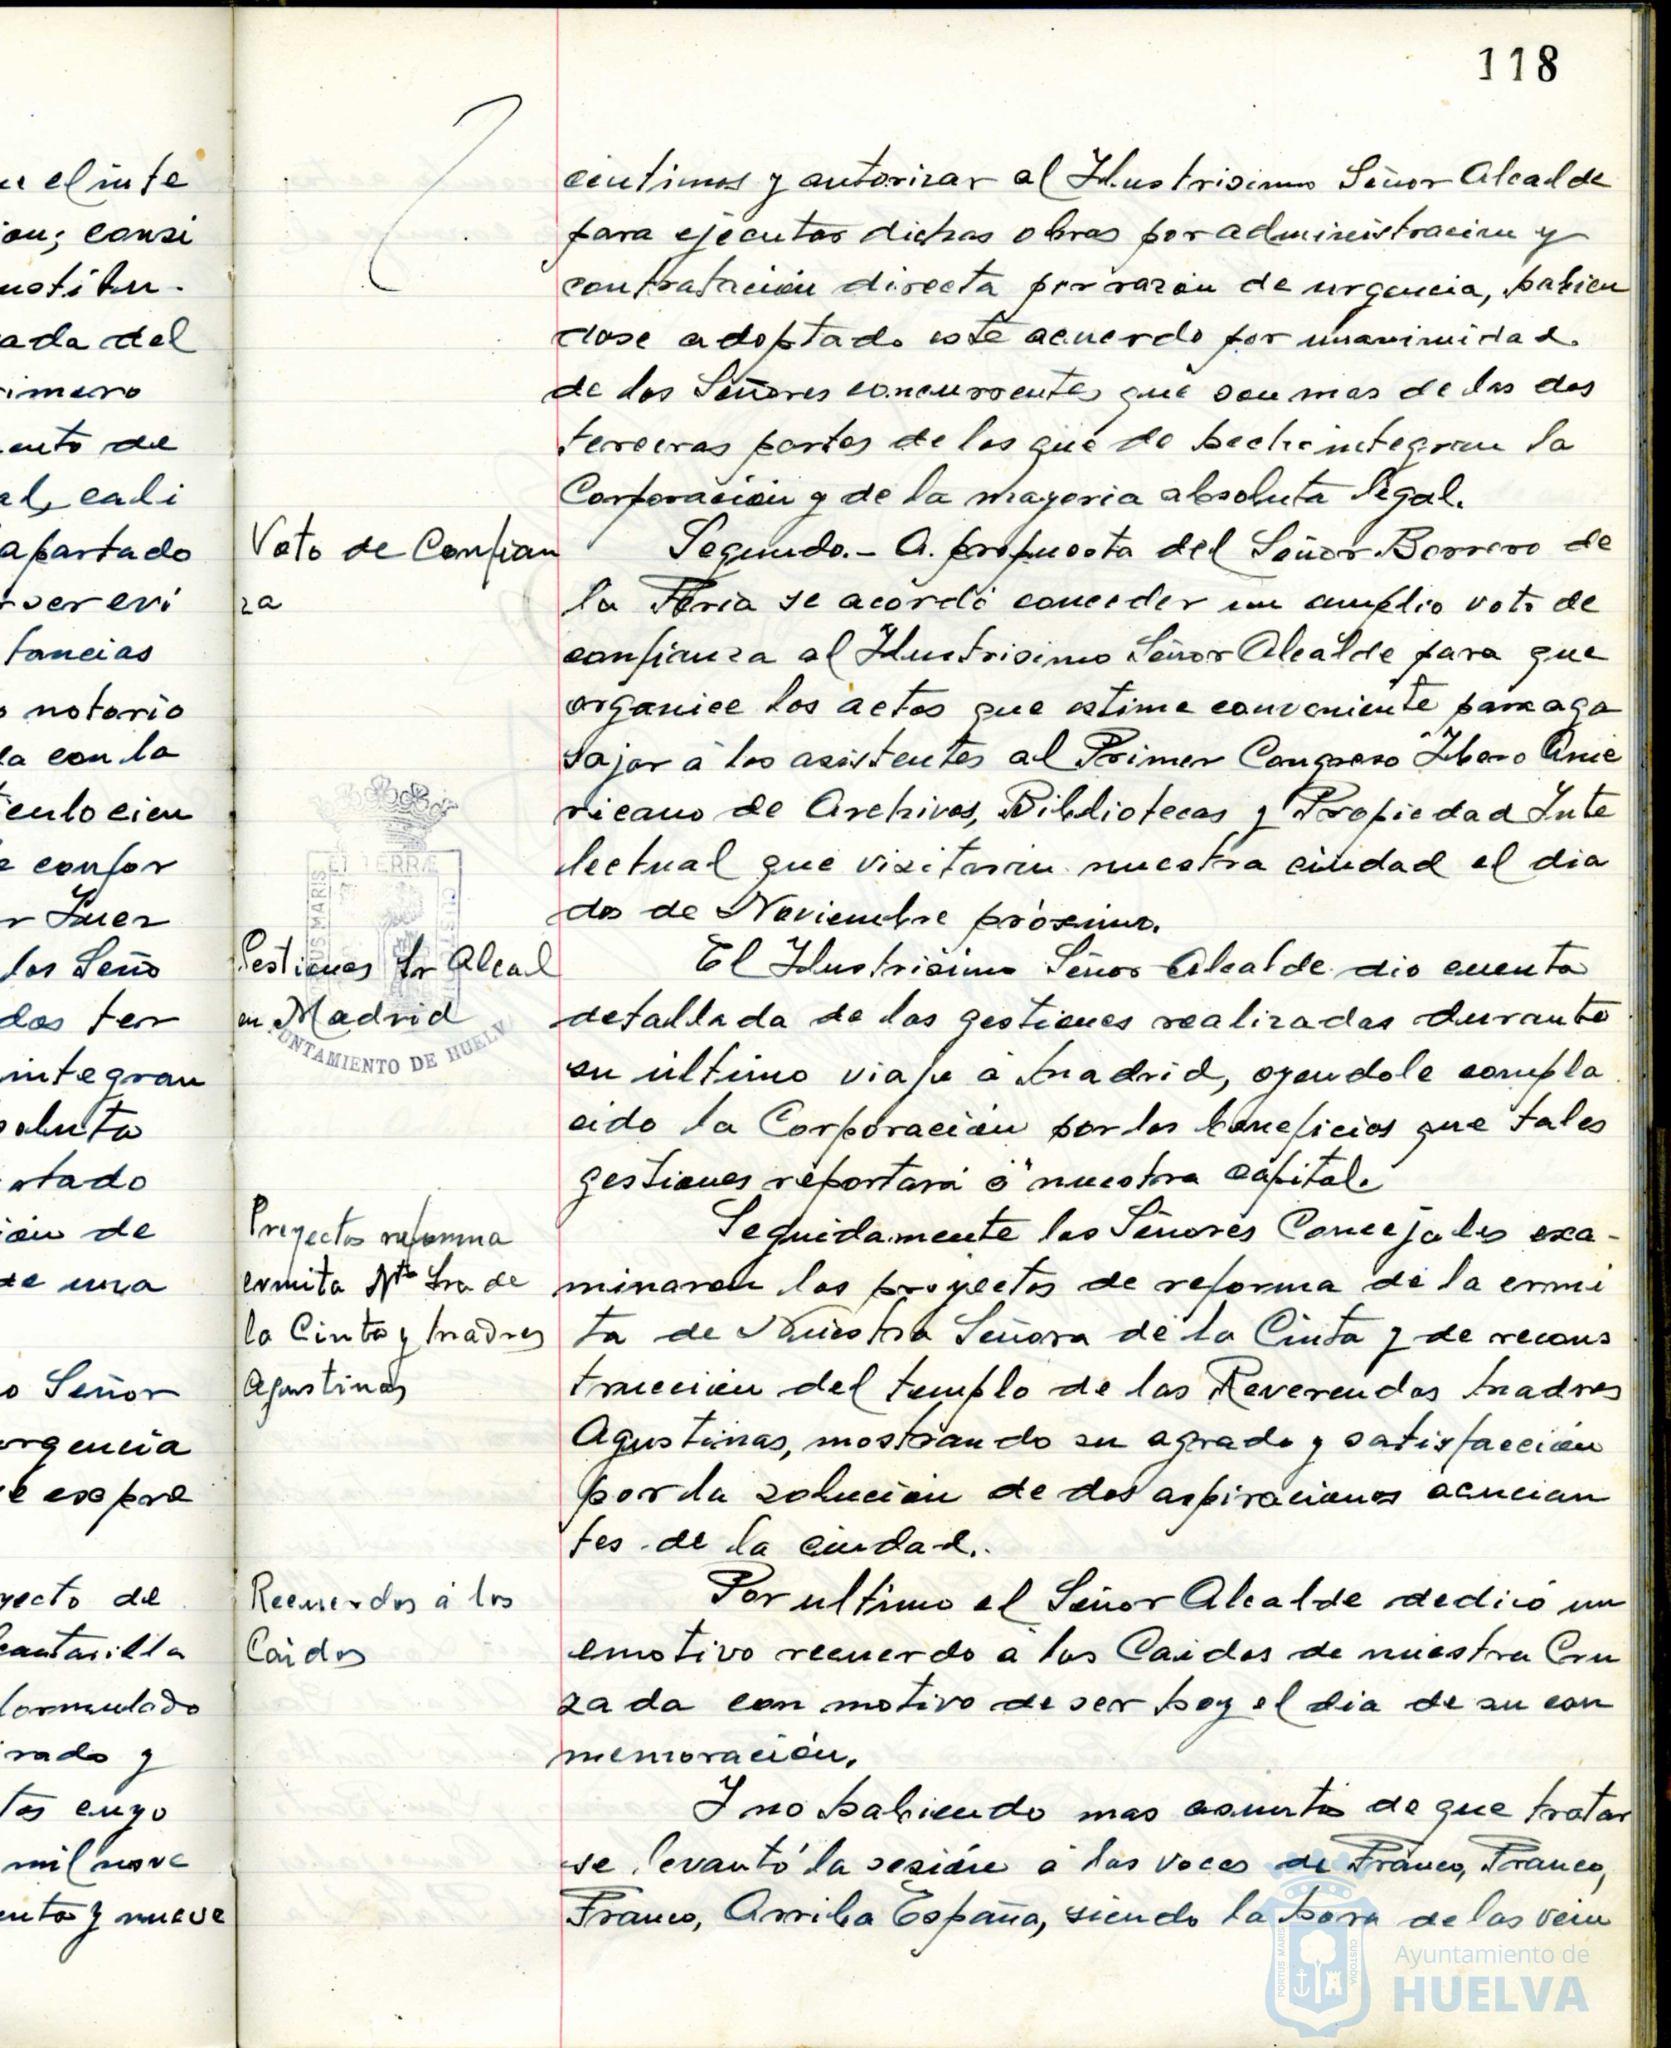 118
u el inte
ion; consi
nstitu.
ada del
rimero
ento de
al, cali
apartado
r ser evi
tancias
o notorio
la con la
iculo cien
e confor
r Juez
los Seño
dos ter
integran
soluta
stado
ión de
de una
o Señor
urgencia
e expre
yecto de
lcantarilla
formulado
rado y
tos cuyo
mil nove
enta y nueve
centimos y autorizar al Ilustrisimo Señor Alcalde
para ejecutar dichas obras por administracion y
contratación directa por razón de urgencia, habien
dose adoptado este acuerdo por unanimidad.
de los Señores concurrentes que son mas de las dos
terceras partes de los que de hecho integran la
Corporación y de la mayoria absoluta legal.
Voto de Confian
za
Segundo.- A propuesta del Señor Borrero de
la Feria se acordó conceder un amplio voto de
confianza al Ilustrisimo Señor Alcalde para que
organice los actos que estime conveniente para aga
sajar á los asistentes al Primer Congreso Ibero Ame
ricano de Archivos, Bibliotecas y Propiedad Inte
lectual que visitarán nuestra ciudad el dia
dos de Noviembre próximo.
Gestiones Sr Alcal
en Madrid
El Ilustrisimo Señor Alcalde dio cuenta
detallada de las gestiones realizadas durante
su último viaje á Madrid, oyendole compla
cido la Corporación por los beneficios que tales
gestiones reportará á nuestra capital.
Proyectos reforma
ermita Ntª Sra de
la Cinta y Madres
Agustinas
Seguidamente los Señores Concejales exa-
minaron los proyectos de reforma de la ermi
ta de Nuestra Señora de la Cinta y de recons
trucción del templo de las Reverendas Madres
Agustinas, mostrando su agrado y satisfacción
por la solución de dos aspiraciones acucian
tes de la ciudad.
Recuerdos á los
Caidos
Por ultimo el Señor Alcalde dedicó un
emotivo recuerdo á los Caidos de nuestra Cru
zada con motivo de ser hoy el dia de su con
memoración.
Y no habiendo mas asuntos de que tratar
se levantó la sesión á las voces de Franco, Franco,
Franco, Arriba España, siendo la hora de las vein
ET TERRÆ
US MARIS
UNTAMIENTO DE HUELV
PORTUS MARIS
CUSTODIA
Ayuntamiento de
HUELVA